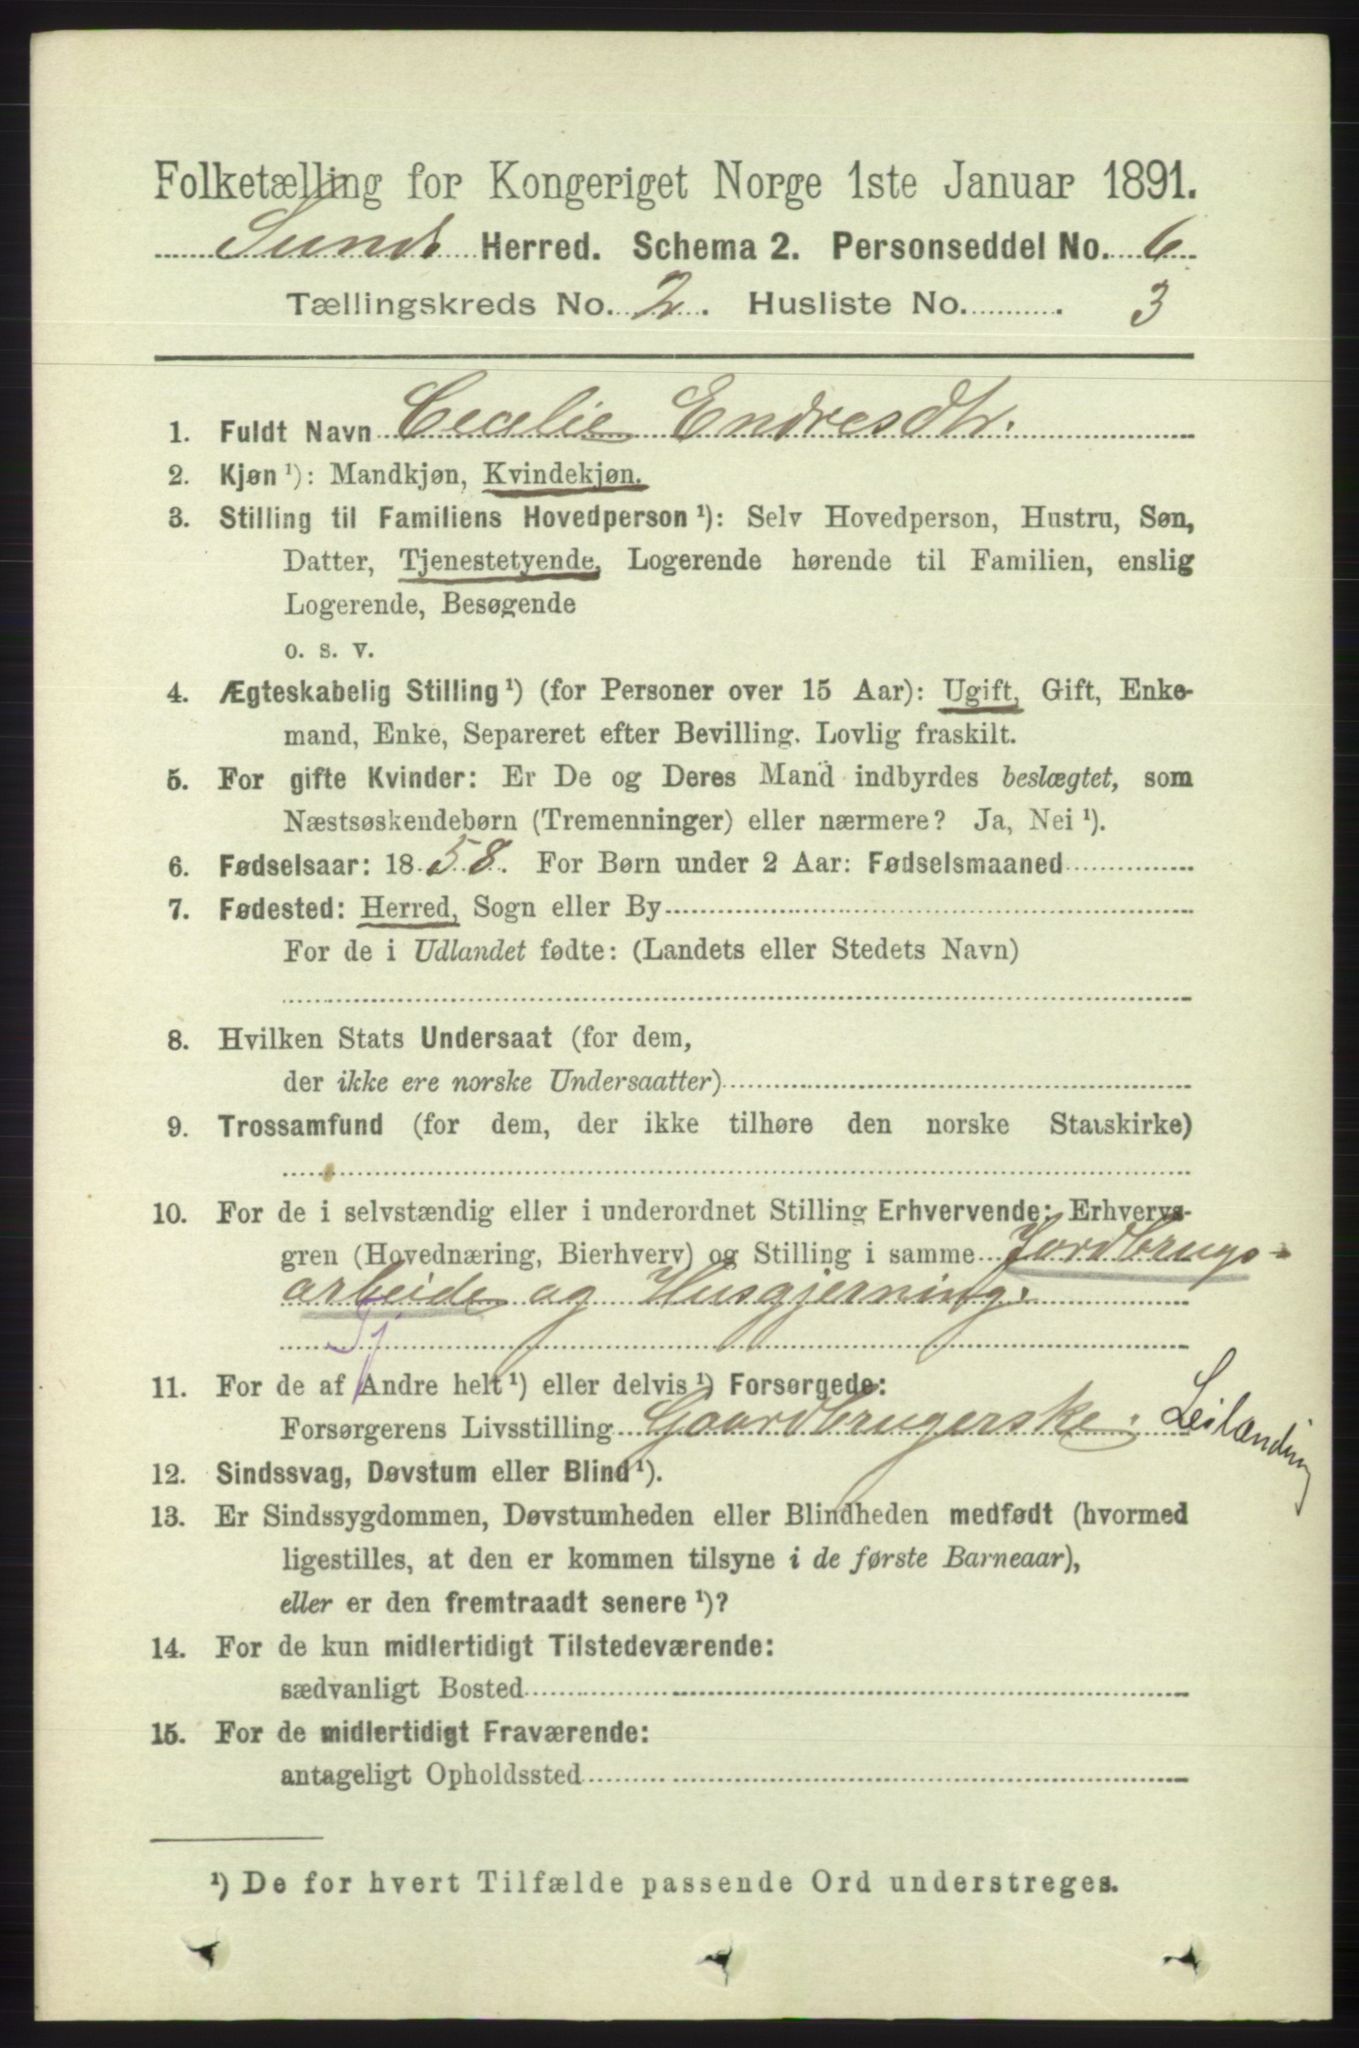 Folketælling for Kongeriget Norge 1ste Januar 1891.
Sund Herred. Schema 2. Personseddel No. 6
Tællingskreds No. 2. Husliste No. 3
1. Fuldt Navn Cecelie Endresdtr.
2. Kjøn ¹): Mandkjøn, Kvindekjøn.
3. Stilling til Familiens Hovedperson ¹): Selv Hovedperson, Hustru, Søn,
Datter, Tjenestetyende, Logerende hørende til Familien, enslig
Logerende, Besøgende
o. s. v.
4. Ægteskabelig Stilling ¹) (for Personer over 15 Aar): Ugift, Gift, Enke-
mand, Enke, Separeret efter Bevilling. Lovlig fraskilt.
5. For gifte Kvinder: Er De og Deres Mand indbyrdes beslægtet, som
Næstsøskendebørn (Tremenninger) eller nærmere? Ja, Nei ¹).
6. Fødselsaar: 1858. For Børn under 2 Aar: Fødselsmaaned
7. Fødested: Herred, Sogn eller By
For de i Udlandet fødte: (Landets eller Stedets Navn)
8. Hvilken Stats Undersaat (for dem,
der ikke ere norske Undersaatter)
9. Trossamfund (for dem, der ikke tilhøre den norske Statskirke)
10. For de i selvstændig eller i underordnet Stilling Erhvervende: Erhvervs-
gren (Hovednæring, Bierhverv) og Stilling i samme Jordbrugs-
arbeide og Husgjerning.
Tj
11. For de af Andre helt ¹) eller delvis ¹) Forsørgede:
Forsørgerens Livsstilling Gaardbrugerske. Leilænding
12. Sindssvag, Døvstum eller Blind ¹).
13. Er Sindssygdommen, Døvstumheden eller Blindheden medfødt (hvormed
ligestilles, at den er kommen tilsyne i de første Barneaar),
eller er den fremtraadt senere ¹)?
14. For de kun midlertidigt Tilstedeværende:
sædvanligt Bosted
15. For de midlertidigt Fraværende:
antageligt Opholdssted
¹) De for hvert Tilfælde passende Ord understreges.